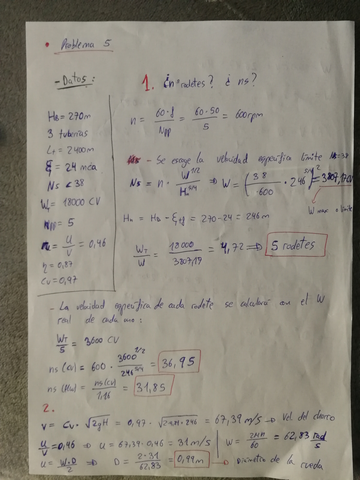 • Problema 5
- Datos:
HB = 270m
3 tuberías
Lt = 2400m
ξ = 24 mca
Ns < 38
WT = 18000 CV
Npp = 5
= u/v = 0,46
η = 0,87
Cv = 0,97
1. ¿nº rodetes? ¿ ns?
n = 60·f/Npp = 60·50/5 = 600rpm
- Se escoge la velocidad específica límite Ns=38
Ns = n · W^1/2/H^5/4 ⇒ W = (38/600 · 246^5/4)^2 = 3807,19 CV
W max
Hn = HB - ξ = 270-24 = 246m
WT/W = 18000/3807,19 = 4,72 ⇒ 5 rodetes
- La velocidad específica de cada rodete se calculará con el W
real de cada uno:
WT/5 = 3600 CV
ns (CV) = 600 · 3600^1/2/246^5/4 = 36,95
ns (kW) = ns(CV)/1,16 = 31,85
2.
v = Cv · √2gH = 0,97 · √2·9,81·246 = 67,39 m/s → Vel. del chorro
u/v = 0,46 ⇒ u = 67,39·0,46 = 31 m/s
W = 2πn/60 = 62,83 rad/s
u = W·D/2 ⇒ D = 2·31/62,83 = 0,99m → Diámetro de la rueda